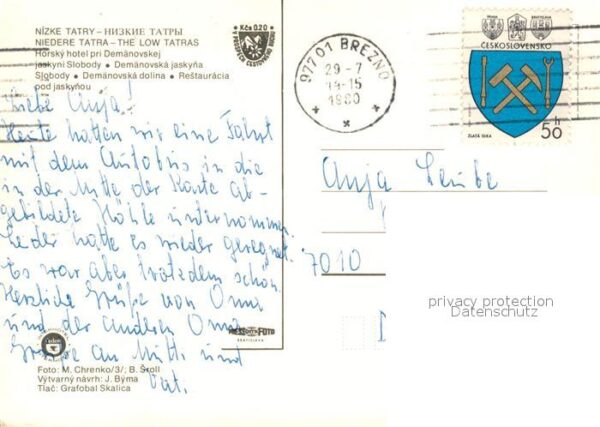 NÍZKE TATRY – НИЗКИЕ ТАТРЫ
NIEDERE TATRA – THE LOW TATRAS
Horský hotel pri Demänovskej
jaskyni Slobody • Demänovská jaskyňa
Slobody • Demänovská dolina • Reštaurácia
pod jaskyňou
Kčs 0,20
Liebe Anja!
Heute hatten wir eine Fahrt
mit dem Autobus in die
in der Mitte der Karte ab-
gebildete Höhle unternommen.
Leider hatte es wieder geregnet.
Es war aber trotzdem schön.
Herzliche Grüße von Oma
und der anderen Oma
Grüße an Mutti und
Vati.
PRESSFOTO
BRATISLAVA
Foto: M. Chrenko/3/; B. Šroll
Výtvarný návrh: J. Býma
Tlač: Grafobal Skalica
977 01 BREZNO
29-7
1980
ČESKOSLOVENSKO
50 h
Anja
7010
privacy protection
Datenschutz